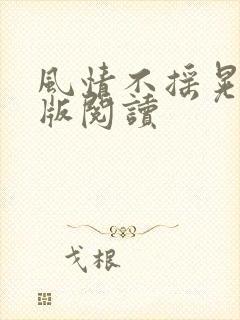 風情不搖晃
版閱讀
戈根